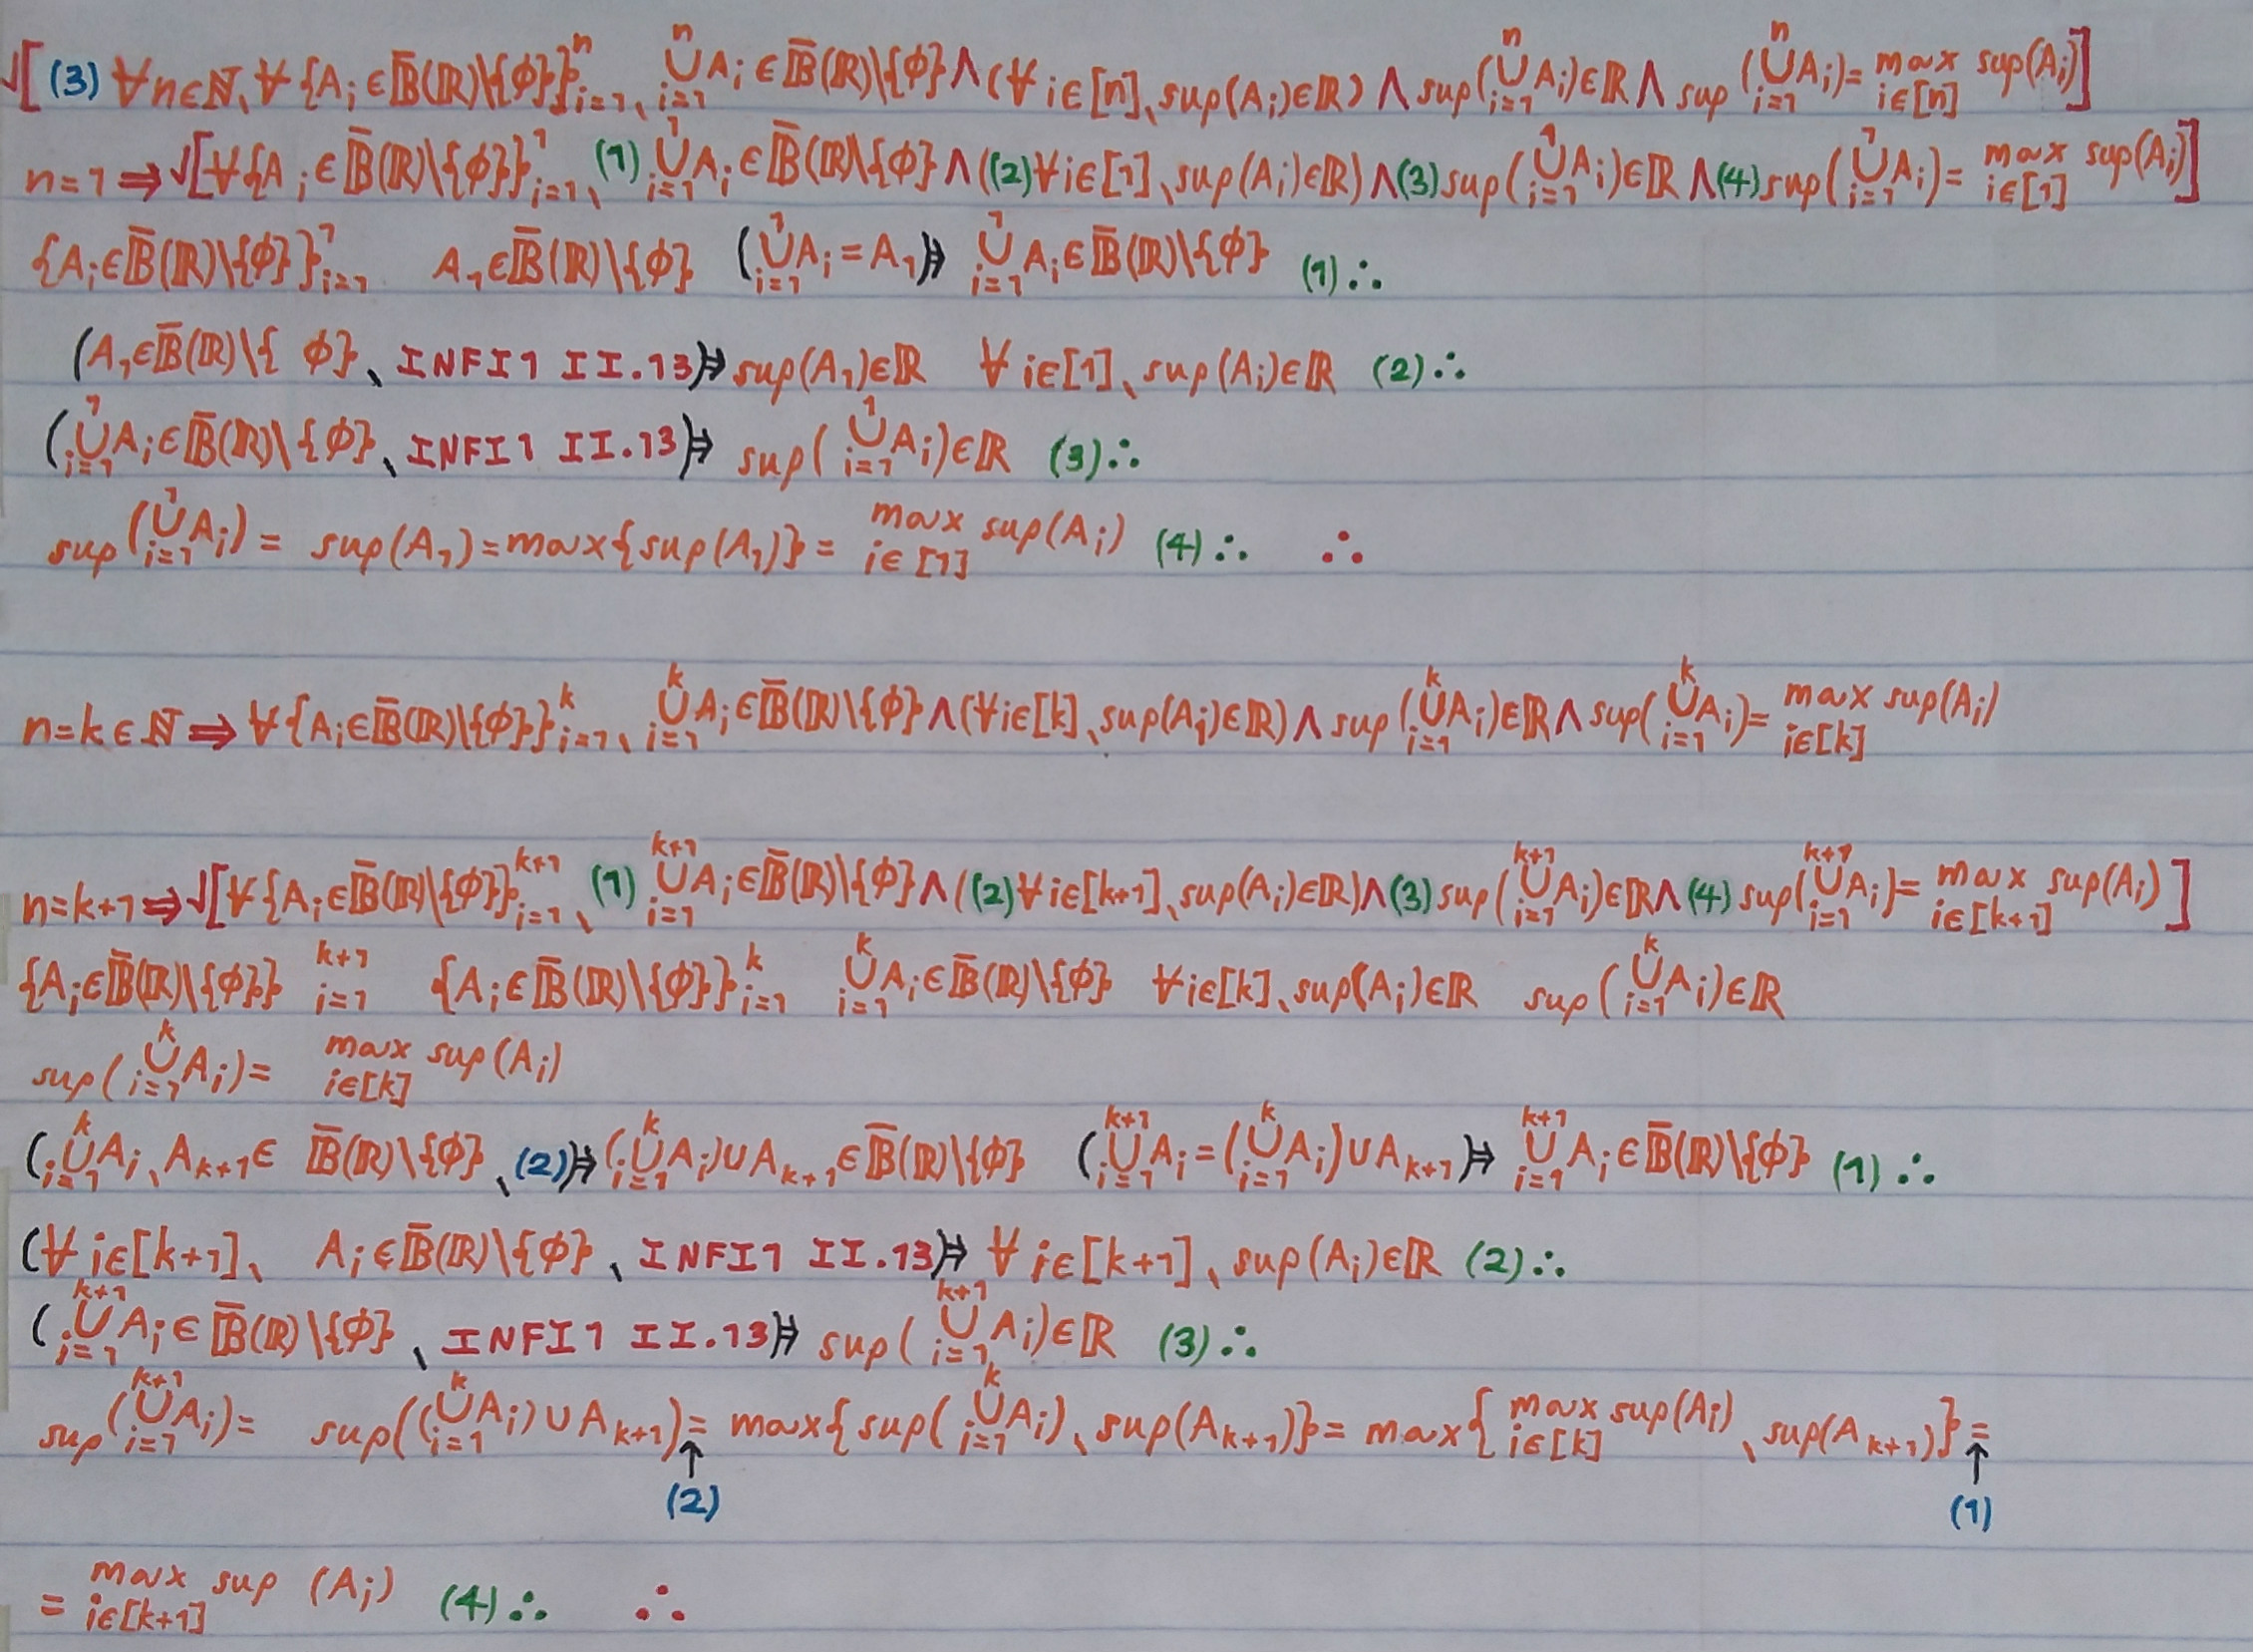 √[(3) ∀n∈ℕ、∀{A_i∈𝔹̅(ℝ)\{ϕ}}_{i=1}^{n}、⋃_{i=1}^{n}A_i∈𝔹̅(ℝ)\{ϕ}∧(∀i∈[n]、sup(A_i)∈ℝ)∧sup(⋃_{i=1}^{n}A_i)∈ℝ∧sup(⋃_{i=1}^{n}A_i)=max_{i∈[n]} sup(A_i)]
n=1⇒√[∀{A_i∈𝔹̅(ℝ)\{ϕ}}_{i=1}^{1}、(1)⋃_{i=1}^{1}A_i∈𝔹̅(ℝ)\{ϕ}∧((2)∀i∈[1]、sup(A_i)∈ℝ)∧(3)sup(⋃_{i=1}^{1}A_i)∈ℝ∧(4)sup(⋃_{i=1}^{1}A_i)=max_{i∈[1]} sup(A_i)]
{A_i∈𝔹̅(ℝ)\{ϕ}}_{i=1}^{1} A_1∈𝔹̅(ℝ)\{ϕ} (⋃_{i=1}^{1}A_i=A_1)⇒ ⋃_{i=1}^{1}A_i∈𝔹̅(ℝ)\{ϕ} (1)∴
(A_1∈𝔹̅(ℝ)\{ϕ}、INFI1 II.13)⇒ sup(A_1)∈ℝ ∀i∈[1]、sup(A_i)∈ℝ (2)∴
(⋃_{i=1}^{1}A_i∈𝔹̅(ℝ)\{ϕ}、INFI1 II.13)⇒ sup(⋃_{i=1}^{1}A_i)∈ℝ (3)∴
sup(⋃_{i=1}^{1}A_i)= sup(A_1)=max{sup(A_1)}= max_{i∈[1]} sup(A_i) (4)∴ ∴
n=k∈ℕ⇒∀{A_i∈𝔹̅(ℝ)\{ϕ}}_{i=1}^{k}、⋃_{i=1}^{k}A_i∈𝔹̅(ℝ)\{ϕ}∧(∀i∈[k]、sup(A_i)∈ℝ)∧sup(⋃_{i=1}^{k}A_i)∈ℝ∧sup(⋃_{i=1}^{k}A_i)=max_{i∈[k]} sup(A_i)
n=k+1⇒√[∀{A_i∈𝔹̅(ℝ)\{ϕ}}_{i=1}^{k+1}、(1)⋃_{i=1}^{k+1}A_i∈𝔹̅(ℝ)\{ϕ}∧((2)∀i∈[k+1]、sup(A_i)∈ℝ)∧(3)sup(⋃_{i=1}^{k+1}A_i)∈ℝ∧(4)sup(⋃_{i=1}^{k+1}A_i)=max_{i∈[k+1]} sup(A_i)]
{A_i∈𝔹̅(ℝ)\{ϕ}}_{i=1}^{k+1} {A_i∈𝔹̅(ℝ)\{ϕ}}_{i=1}^{k} ⋃_{i=1}^{k}A_i∈𝔹̅(ℝ)\{ϕ} ∀i∈[k]、sup(A_i)∈ℝ sup(⋃_{i=1}^{k}A_i)∈ℝ
sup(⋃_{i=1}^{k}A_i)= max_{i∈[k]} sup(A_i)
(⋃_{i=1}^{k}A_i、A_{k+1}∈ 𝔹̅(ℝ)\{ϕ}、(2))⇒(⋃_{i=1}^{k}A_i)∪A_{k+1}∈𝔹̅(ℝ)\{ϕ} (⋃_{i=1}^{k+1}A_i=(⋃_{i=1}^{k}A_i)∪A_{k+1})⇒ ⋃_{i=1}^{k+1}A_i∈𝔹̅(ℝ)\{ϕ} (1)∴
(∀i∈[k+1]、 A_i∈𝔹̅(ℝ)\{ϕ}、INFI1 II.13)⇒ ∀i∈[k+1]、sup(A_i)∈ℝ (2)∴
(⋃_{i=1}^{k+1}A_i∈𝔹̅(ℝ)\{ϕ}、INFI1 II.13)⇒ sup(⋃_{i=1}^{k+1}A_i)∈ℝ (3)∴
sup(⋃_{i=1}^{k+1}A_i)= sup((⋃_{i=1}^{k}A_i)∪A_{k+1})= max{sup(⋃_{i=1}^{k}A_i)、sup(A_{k+1})}= max{max_{i∈[k]} sup(A_i)、sup(A_{k+1})}=
↑ ↑
(2) (1)
= max_{i∈[k+1]} sup (A_i) (4)∴ ∴